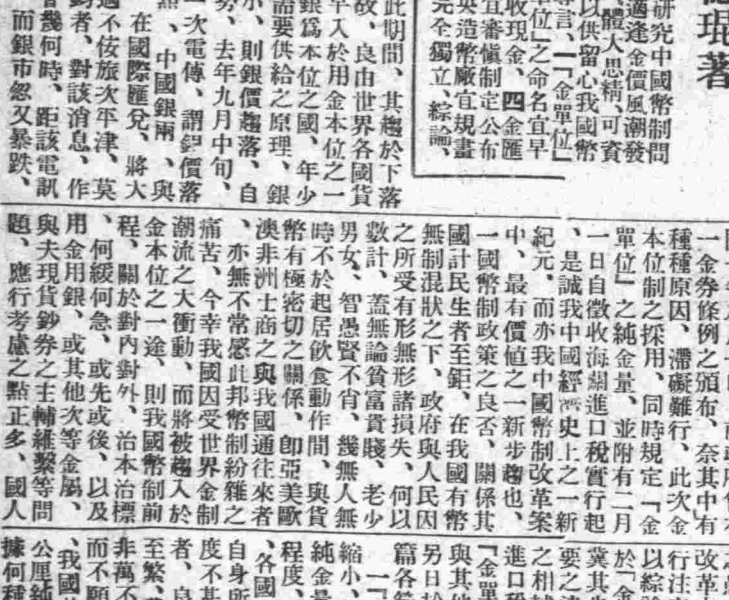 琨著
研究中國幣制問
適逢金價風潮發
體大思精、可資
以供留心我國幣
言、一「金單位」
位」之命名宜早
收現金、四金匯
宜審慎制定公布
英造幣廠宜規畫
完全獨立、綜論、
此期間、其趨於下落
故、良由世界各國貨
早入於用金本位之一
銀爲本位之國、年少
需要供給之原理、銀
小、則銀價趨落、自
勢、去年九月中旬、
一次電傳、謂銀價落
、中國銀兩、與
在國際匯兌、將大
適不佞旅次平津、莫
者、對該消息、作
幾何時、距該電訊
而銀市忽又暴跌、
一金券條例之頒布、奈其中有
種種原因、滯礙難行、此次金
本位制之採用、同時規定「金
單位」之純金量、並附有二月
一日自徵收海關進口稅實行起
、是誠我中國經濟史上之一新
紀元、而亦我中國幣制改革案
中、最有價値之一新步趨也、
一國幣制政策之良否、關係其
國計民生者至鉅、在我國有幣
無制混狀之下、政府與人民因
之所受有形無形諸損失、何以
數計、蓋無論貧富貴賤、老少
男女、智愚賢不肖、幾無人無
時不於起居飲食動作間、與貨
幣有極密切之關係、卽亞美歐
澳非洲士商之與我國通往來者
、亦無不常感此邦幣制紛雜之
痛苦、今幸我國因受世界金制
潮流之大衝動、而將被趨入於
金本位之一途、則我國幣制前
程、關於對內對外、治本治標
、何緩何急、或先或後、以及
用金用銀、或其他次等金屬、
與夫現貨鈔券之主輔維繫等問
題、應行考慮之點正多、國人
改革
行注
以綜論
於「金
冀其
要之
之相
進口稅
「金單
與其他
另日於
篇各篇
一「
縮小、
純金量
程度、
、各國
自身所
度不甚
者、良
至繁、
非萬不
而不願
、我國
公厘純
據何種